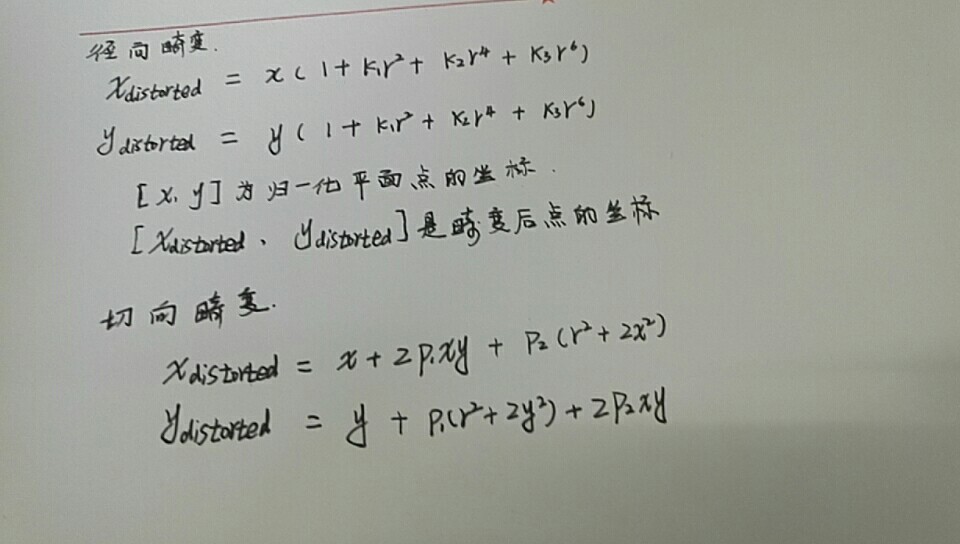 径向畸变.
x distorted = x ( 1 + k₁r² + k₂r⁴ + k₃r⁶ )
y distorted = y ( 1 + k₁r² + k₂r⁴ + k₃r⁶ )
[x, y] 为归一化平面点的坐标.
[x distorted、y distorted] 是畸变后点的坐标
切向畸变.
x distorted = x + 2p₁xy + p₂(r² + 2x²)
y distorted = y + p₁(r² + 2y²) + 2p₂xy